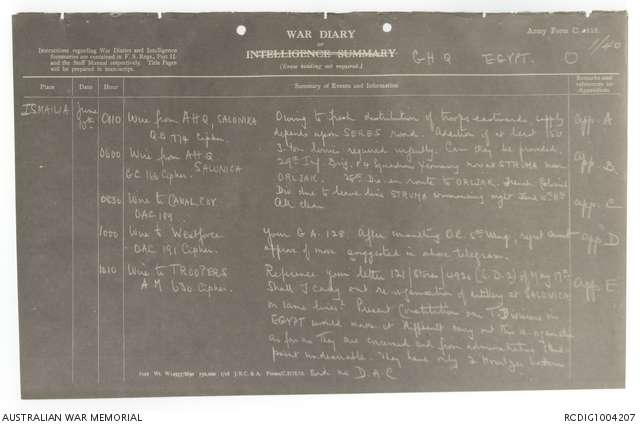 WAR DIARY
or
INTELLIGENCE SUMMARY
(Erase heading not required.)
Army Form C. 2118.
1/40
Instructions regarding War Diaries and Intelligence
Summaries are contained in F. S. Regs., Part II.
and the Staff Manual respectively. Title Pages
will be prepared in manuscript.
GHQ EGYPT. O
Place
Date
Hour
Summary of Events and Information
Remarks and
references to
Appendices
ISMAILIA June 10th 0110 Wire from AHQ, SALONIKA
Q.B. 774 Cipher.
Owing to fresh distribution of troops eastwards supply
depends upon SERES road. Addition of at least 150
3-ton lorries required urgently. Can they be provided.
app. A
0600 Wire from AHQ
SALONICA
G.C. 166 Cipher.
29th Inf. Brig. & Squadron Yeomanry now at STRUMA near
ORLJAK. 28th Div. en route to ORLJAK. French Colonial
Div. due to leave for STRUMA commencing night June
All clear
app. B.
0830 Wire to CANAL COY
OAC 189
app. C
1000 Wire to Westforce
OAC 191 Cipher.
Your G.A. 128. After consulting O.C. 5th Wing, report
approx of move suggested in above telegram.
app. D
1010 Wire to TROOPERS
A.M 630 Cipher.
Reference your letter 121/Stores/4920 (C.D.2) of May 17th.
Shall I carry out re-organisation of artillery at SALONICA
on same lines? Present Constitution our T. Divisions in
EGYPT would make it difficult carry out the re-organisation
as far as they are concerned and from administrative
point undesirable. They have only 2 Howitzer batteries
and no D.A.C
app. E
AUSTRALIAN WAR MEMORIAL
RCDIG1004207